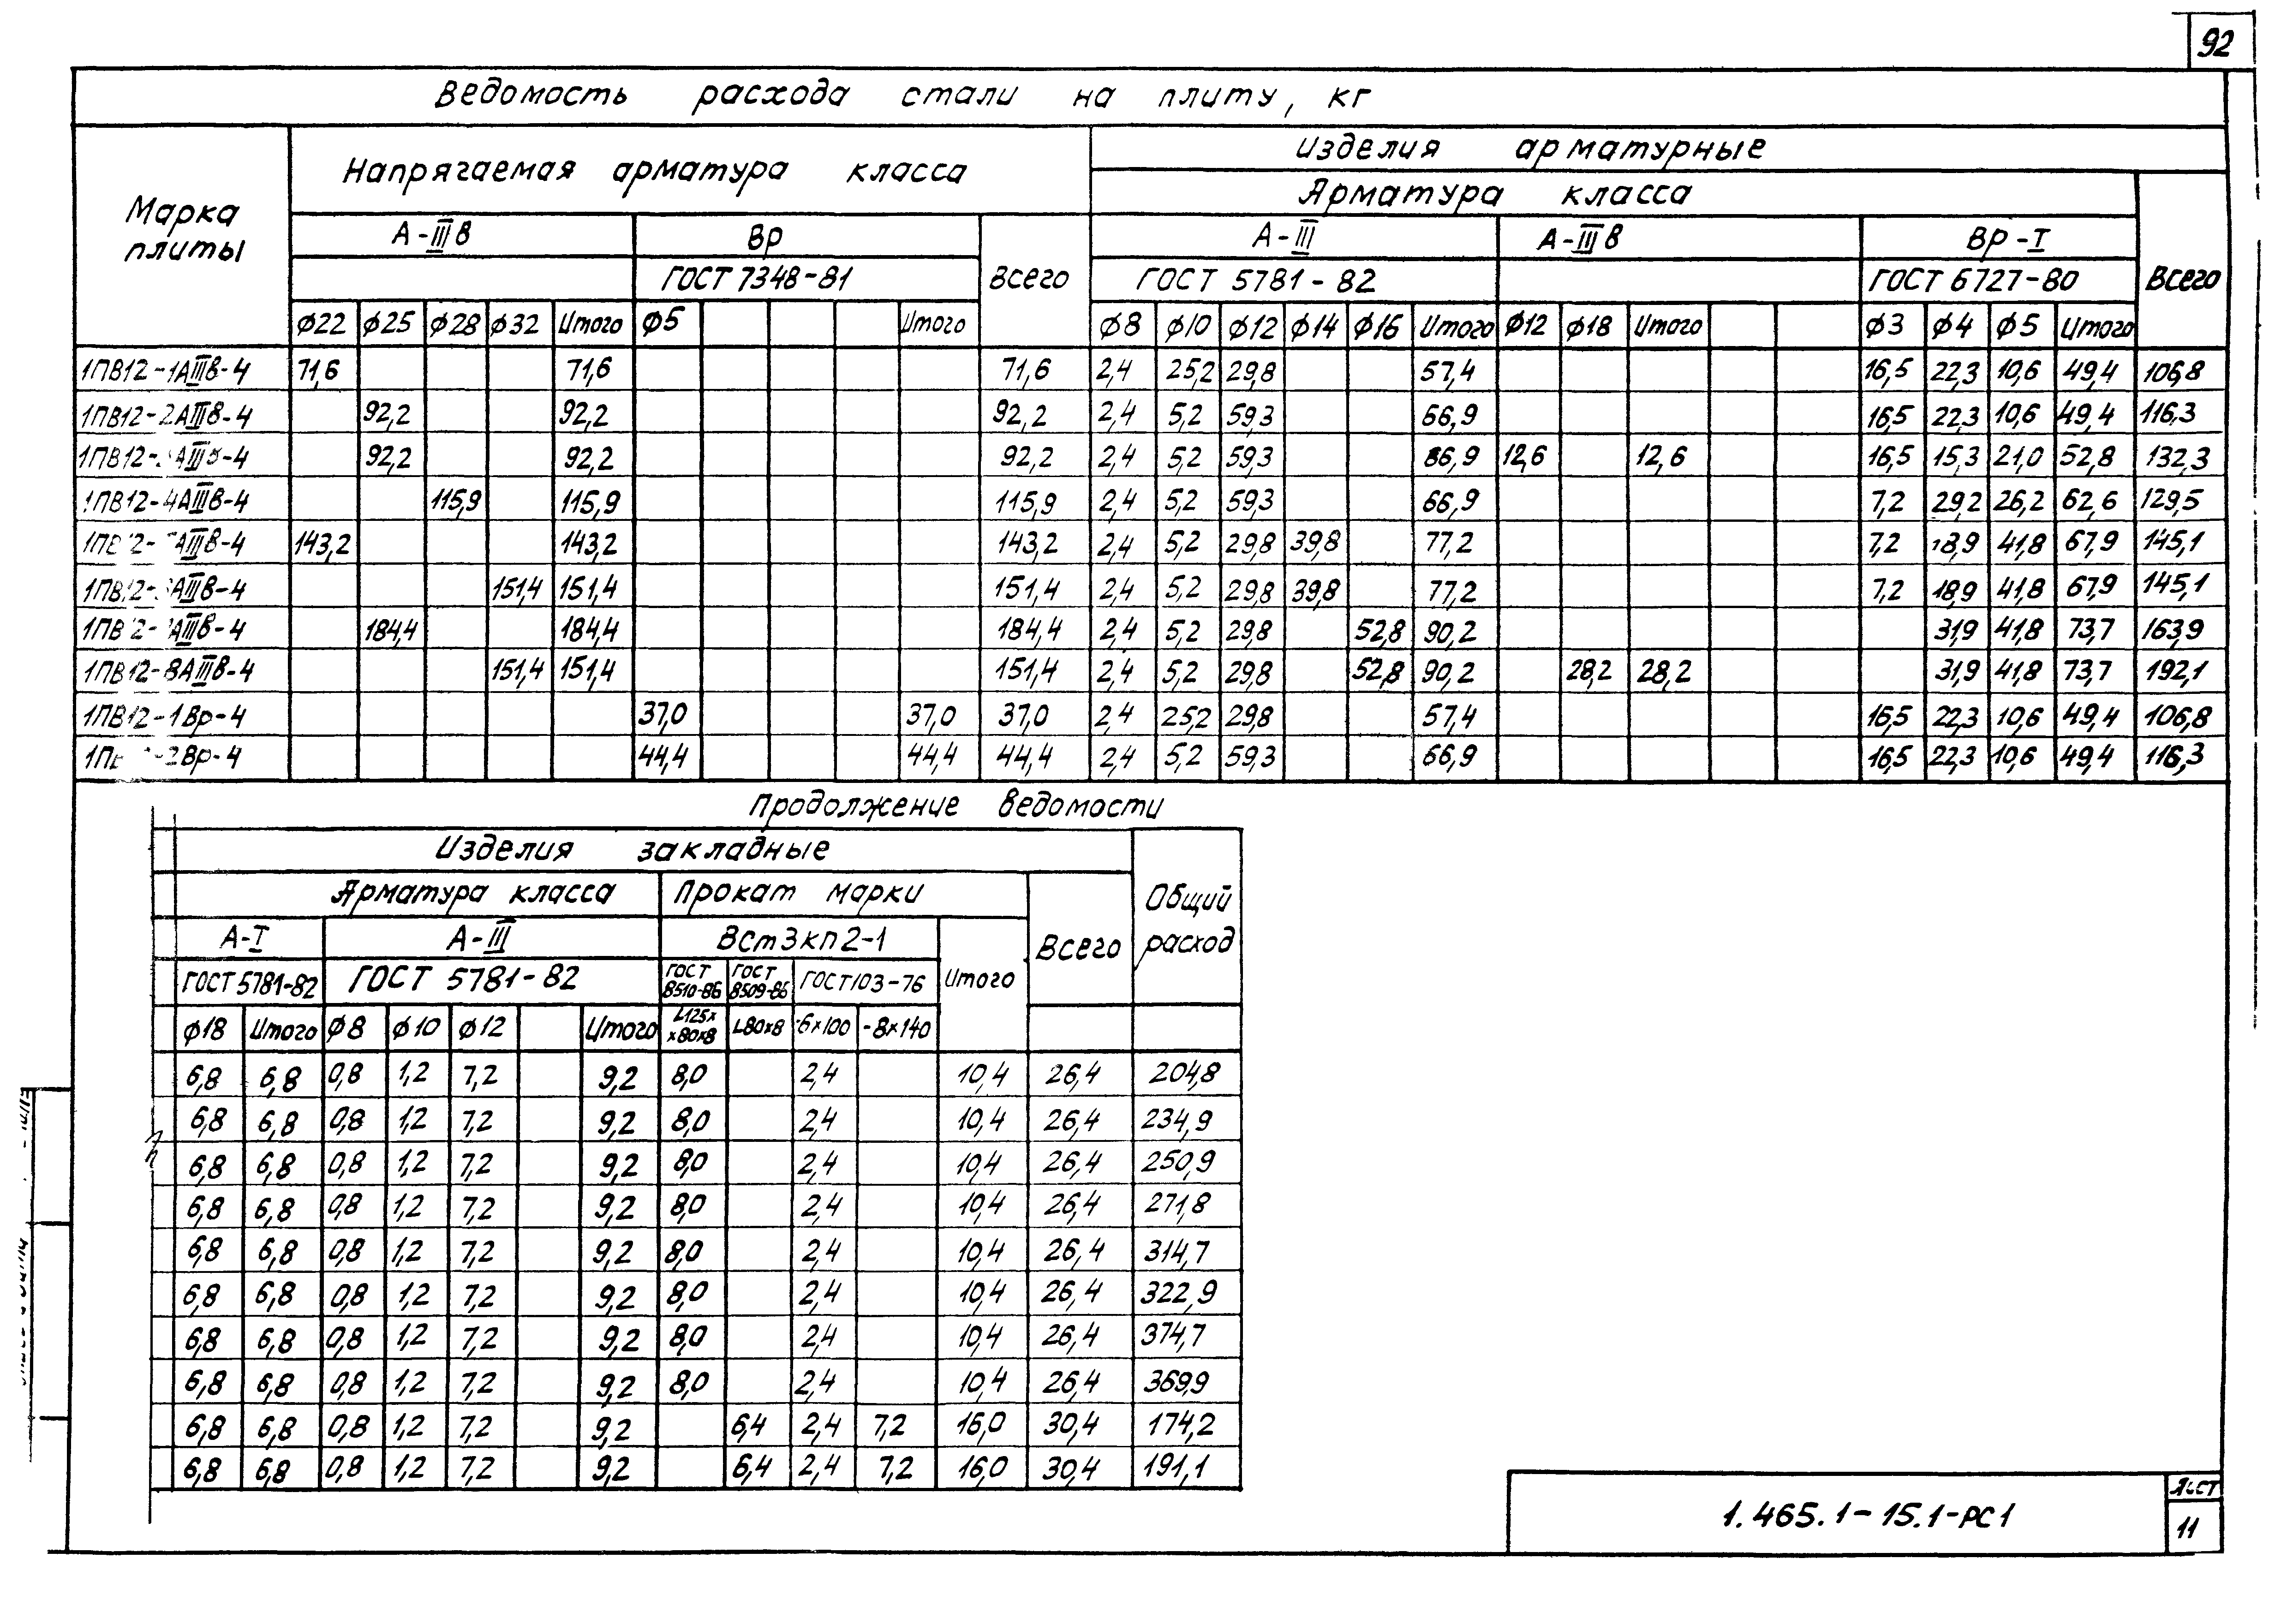 92
Ведомость расхода стали на плиту, кг
Марка плиты
Напрягаемая арматура класса
Изделия арматурные
Арматура класса
А-IIIв Вр Всего А-III А-IIIв Вр-I Всего
ГОСТ 7348-81 ГОСТ 5781-82 ГОСТ 6727-80
ф22 ф25 ф28 ф32 Итого ф5 Итого ф8 ф10 ф12 ф14 ф16 Итого ф12 ф18 Итого ф3 ф4 ф5 Итого
1ПВ12-1АIIIв-4 71,6 71,6 71,6 2,4 25,2 29,8 57,4 16,5 22,3 10,6 49,4 106,8
1ПВ12-2АIIIв-4 92,2 92,2 92,2 2,4 5,2 59,3 66,9 16,5 22,3 10,6 49,4 116,3
1ПВ12- АIIIв-4 92,2 92,2 92,2 2,4 5,2 59,3 66,9 12,6 12,6 16,5 15,3 21,0 52,8 132,3
1ПВ12-4АIIIв-4 115,9 115,9 115,9 2,4 5,2 59,3 66,9 7,2 29,2 26,2 62,6 129,5
1ПВ12- АIIIв-4 143,2 143,2 143,2 2,4 5,2 29,8 39,8 77,2 7,2 18,9 41,8 67,9 145,1
1ПВ12- АIIIв-4 151,4 151,4 151,4 2,4 5,2 29,8 39,8 77,2 7,2 18,9 41,8 67,9 145,1
1ПВ12- АIIIв-4 184,4 184,4 184,4 2,4 5,2 29,8 52,8 90,2 31,9 41,8 73,7 163,9
1ПВ12-8АIIIв-4 151,4 151,4 151,4 2,4 5,2 29,8 52,8 90,2 28,2 28,2 31,9 41,8 73,7 192,1
1ПВ12-1Вр-4 37,0 37,0 37,0 2,4 25,2 29,8 57,4 16,5 22,3 10,6 49,4 106,8
1ПВ -2Вр-4 44,4 44,4 44,4 2,4 5,2 59,3 66,9 16,5 22,3 10,6 49,4 116,3
Продолжение ведомости
Изделия закладные
Общий расход
Арматура класса Прокат марки Всего
А-I А-III ВСт3кп2-1 Итого
ГОСТ 5781-82 ГОСТ 5781-82 ГОСТ 8510-86 ГОСТ 8509-86 ГОСТ 103-76
ф18 Итого ф8 ф10 ф12 Итого L125x x80x8 L80x8 -6x100 -8x140
6,8 6,8 0,8 1,2 7,2 9,2 8,0 2,4 10,4 26,4 204,8
6,8 6,8 0,8 1,2 7,2 9,2 8,0 2,4 10,4 26,4 234,9
6,8 6,8 0,8 1,2 7,2 9,2 8,0 2,4 10,4 26,4 250,9
6,8 6,8 0,8 1,2 7,2 9,2 8,0 2,4 10,4 26,4 271,8
6,8 6,8 0,8 1,2 7,2 9,2 8,0 2,4 10,4 26,4 314,7
6,8 6,8 0,8 1,2 7,2 9,2 8,0 2,4 10,4 26,4 322,9
6,8 6,8 0,8 1,2 7,2 9,2 8,0 2,4 10,4 26,4 374,7
6,8 6,8 0,8 1,2 7,2 9,2 8,0 2,4 10,4 26,4 369,9
6,8 6,8 0,8 1,2 7,2 9,2 6,4 2,4 7,2 16,0 30,4 174,2
6,8 6,8 0,8 1,2 7,2 9,2 6,4 2,4 7,2 16,0 30,4 191,1
1.465.1-15.1-РС1
Лист
11